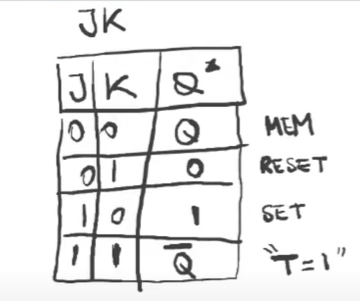 JK
J K Q*
0 0 Q MEM
0 1 0 RESET
1 0 1 SET
1 1 Q̅ "T=1"